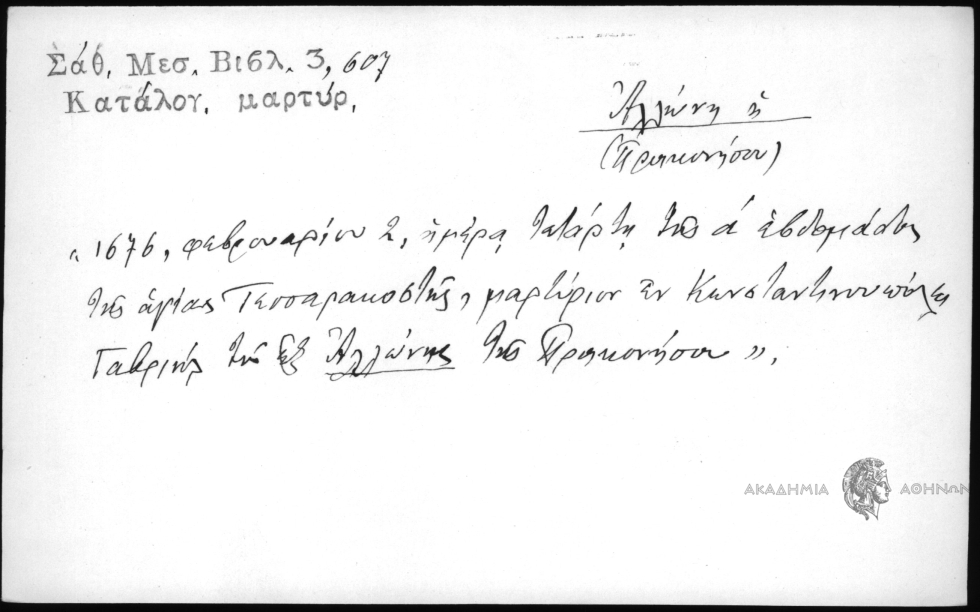 Σάθ. Μεσ. Βιβλ. 3, 607
Κατάλογ. μαρτύρ.
Ἀλλώνη ἡ
(Προικονήσου)
« 1676, φεβρουαρίου 2, ἡμέρᾳ τετάρτῃ τῆς α' ἑβδομάδος
τῆς ἁγίας Τεσσαρακοστῆς, μαρτύριον ἐν Κωνσταντινουπόλει
Γαβριὴλ τοῦ ἐξ Ἀλλώνης τῆς Προικονήσου ».
ΑΚΑΔΗΜΙΑ ΑΘΗΝΩΝ